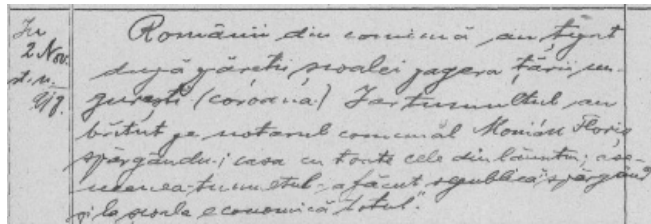 In
2 Nov.
st. n.
918.
Românii din comună au țignt
după păretii școalei pagera țării un-
gurești (coróana.) Iar tumultul au
bătut pe notarul comunal Monián Floris
spărgându-i casa cu toate cele din lăuntru; ase-
menea tumultul a făcut republică spărgând
și la școala economică "totul".